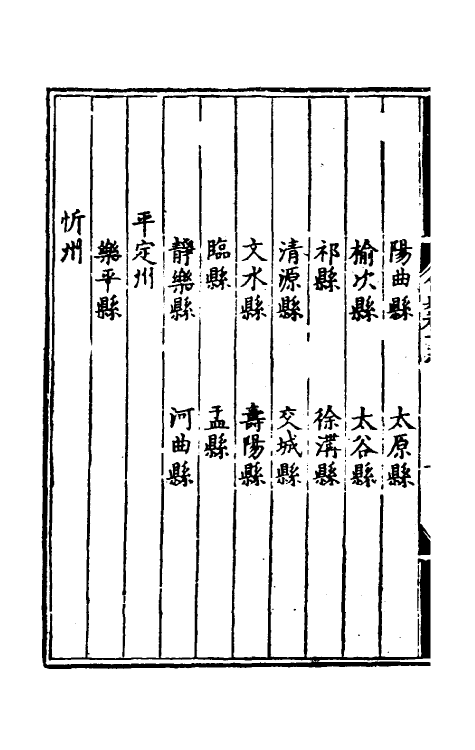 陽曲縣　太原縣
榆次縣　太谷縣
祁縣　徐溝縣
清源縣　交城縣
文水縣　壽陽縣
臨縣　盂縣
靜樂縣　河曲縣
平定州
樂平縣
忻州